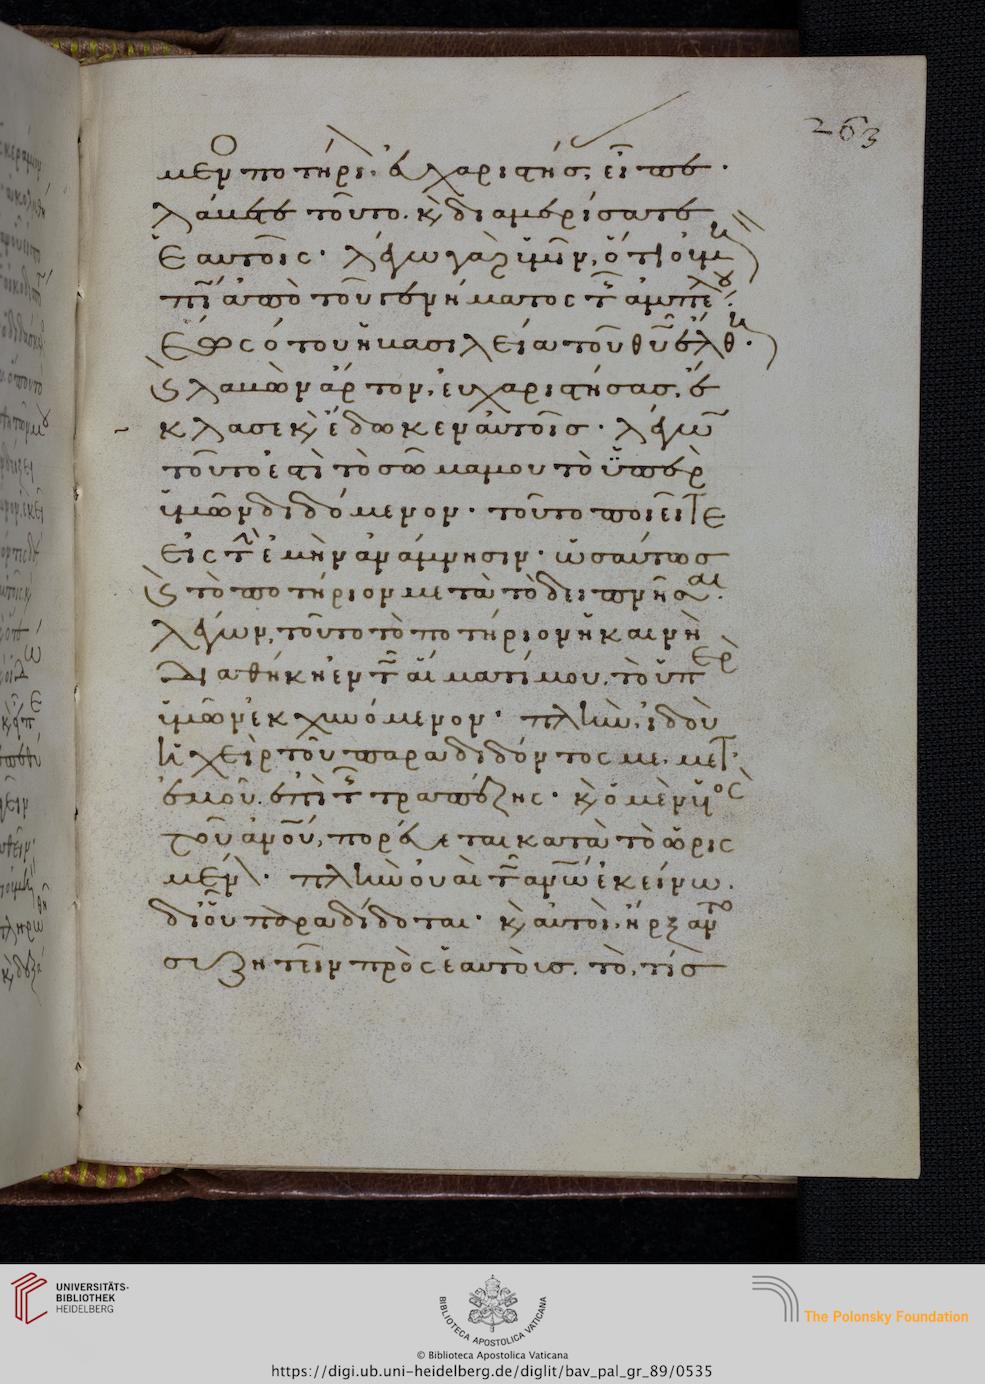 263
μενος ποτήριον. εὐχαριστήσας, εἶπε·
λάβετε τοῦτο. καὶ διαμερίσατε
ἑαυτοῖς· λέγω γὰρ ὑμῖν, ὅτι οὐ μὴ
πίω ἀπὸ τοῦ γεννήματος τῆς ἀμπέλου.
ἕως ὅτου ἡ βασιλεία τοῦ θυ ἔλθη.
καὶ λαβὼν ἄρτον, εὐχαριστήσας, ἔ
κλασε καὶ ἔδωκεν αὐτοῖς· λέγων
τοῦτο ἐστὶ τὸ σῶμα μου τὸ ὑπὲρ
ὑμῶν διδόμενον· τοῦτο ποιεῖτε
εἰς τὴν ἐμὴν ἀνάμνησιν· ὡσαύτως
καὶ τὸ ποτήριον μετὰ τὸ δειπνῆσαι.
λέγων, τοῦτο τὸ ποτήριον ἡ καινὴ
διαθήκη ἐν τῶ αἵματί μου. τὸ ὑπὲρ
ὑμῶν ἐκχυνόμενον· πλὴν, ἰδοὺ
ἡ χεὶρ τοῦ παραδιδόντος με. μετ'
ἐμοῦ. ἐπὶ τῆς τραπέζης· καὶ ὁ μὲν υἱὸς
τοῦ ἀνου, πορεύεται κατὰ τὸ ὡρισ
μένον· πλὴν οὐαὶ τῶ ανω ἐκείνω.
δι' οὗ παραδίδοται· καὶ αὐτοὶ ἤρξαντο
συζητεῖν πρὸς ἑαυτοὺς. τὸ, τίς
UNIVERSITÄTS-
BIBLIOTHEK
HEIDELBERG
BIBLIOTECA APOSTOLICA VATICANA
The Polonsky Foundation
© Biblioteca Apostolica Vaticana
https://digi.ub.uni-heidelberg.de/diglit/bav_pal_gr_89/0535